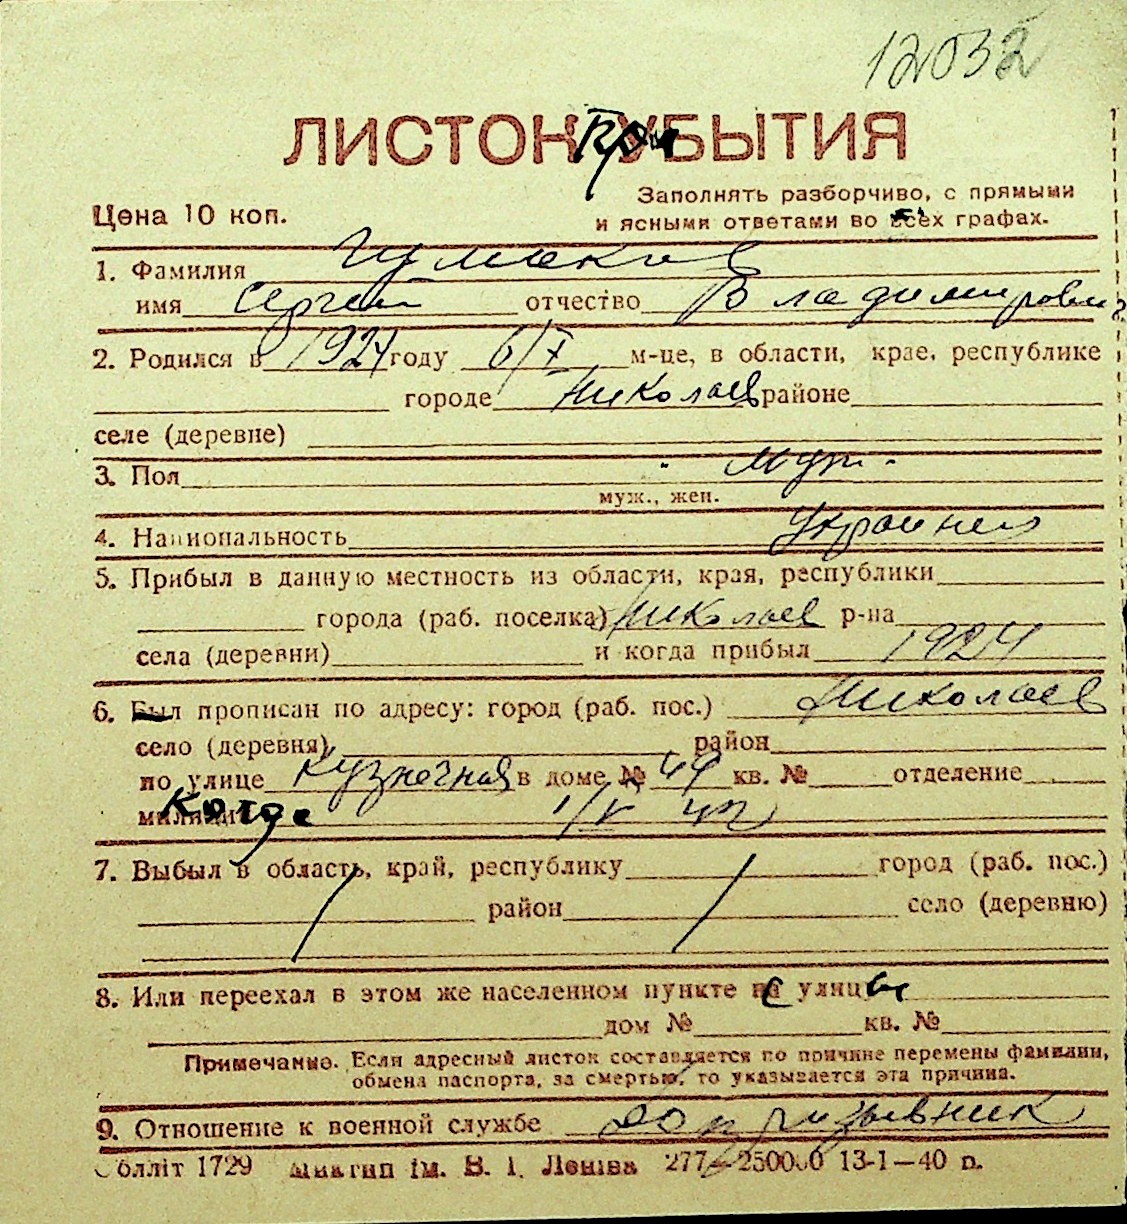 12032
ЛИСТОК УБЫТИЯ При
Цена 10 коп.
Заполнять разборчиво, с прямыми
и ясными ответами во всех графах.
1. Фамилия Чумаков
имя Сергей отчество Владимирович
2. Родился в 1924 году 6/X м-це, в области, крае, республике
городе Николаев районе
селе (деревне)
3. Пол муж.
муж., жен.
4. Национальность Украинец
5. Прибыл в данную местность из области, края, республики
города (раб. поселка) Николаев р-на
села (деревни) и когда прибыл 1924
6. Был прописан по адресу: город (раб. пос.) Николаев
село (деревня) район
по улице Кузнечная в доме № 49 кв. № отделение
милиции Когда 1/V 42
7. Выбыл в область, край, республику город (раб. пос.)
район село (деревню)
8. Или переехал в этом же населенном пункте с улицы
дом № кв. №
Примечание. Если адресный листок составляется по причине перемены фамилии,
обмена паспорта, за смертью, то указывается эта причина.
9. Отношение к военной службе допризывник
Облліт 1729 ім. В. І. Леніна 277—250000 13-1—40 р.